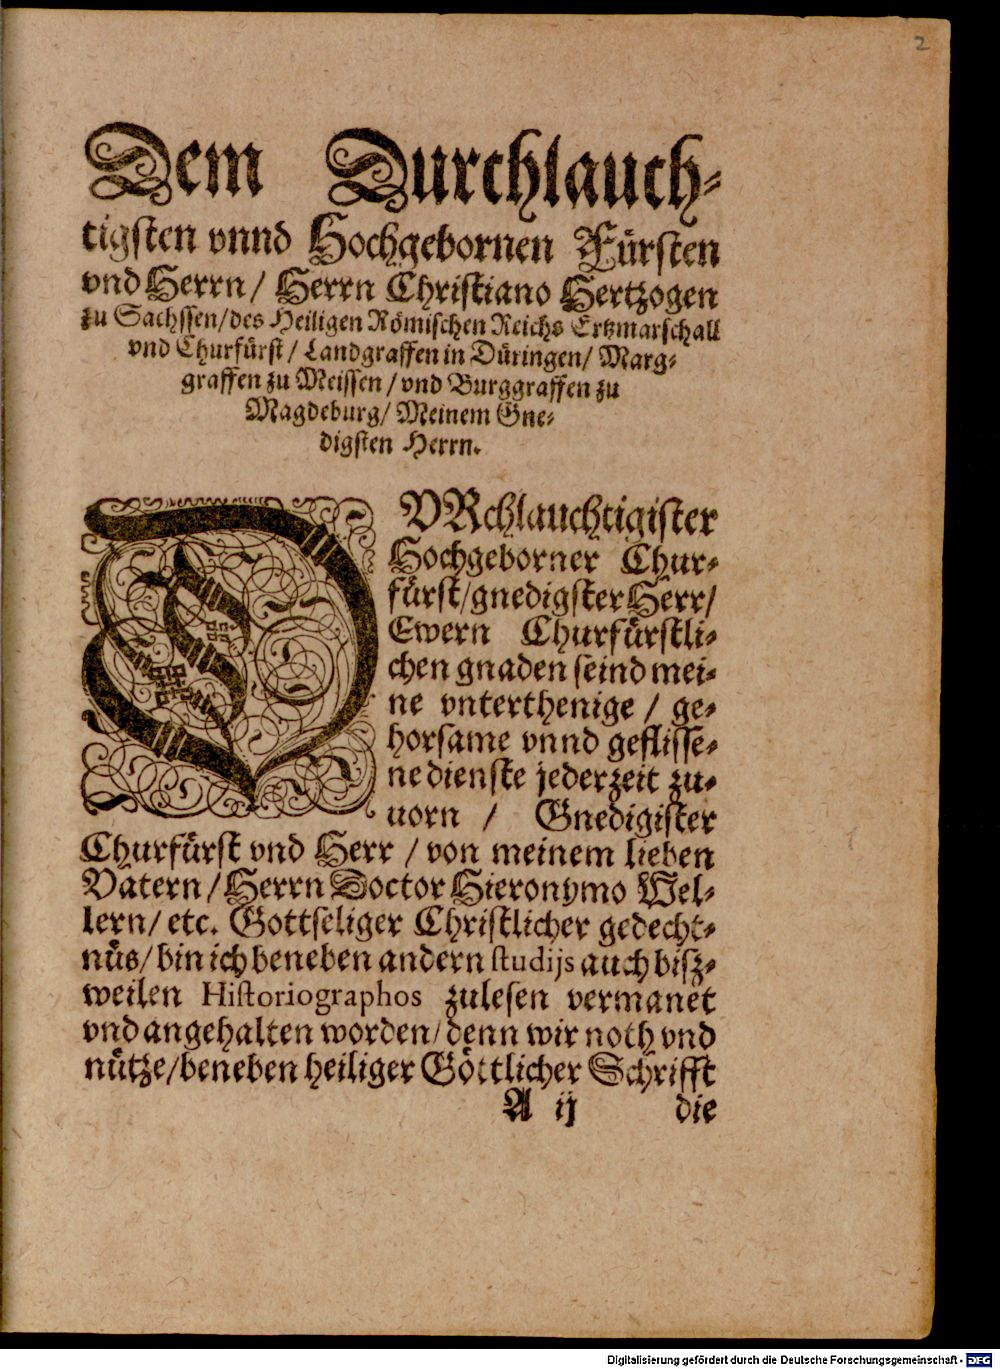 2
Dem Durchlauch-
tigsten vnnd Hochgebornen Fürsten
vnd Herrn / Herrn Christiano Hertzogen
zu Sachssen / des Heiligen Römischen Reichs Ertzmarschall
vnd Churfürst / Landgraffen in Düringen / Marg-
graffen zu Meissen / vnd Burggraffen zu
Magdeburg / Meinem Gne-
digsten Herrn.
DVRchlauchtigister
Hochgeborner Chur-
fürst / gnedigster Herr /
Ewern Churfürstli-
chen gnaden seind mei-
ne vnterthenige / ge-
horsame vnnd geflisse-
ne dienste jederzeit zu-
uorn / Gnedigister
Churfürst vnd Herr / von meinem lieben
Vatern / Herrn Doctor Hieronymo Wel-
lern / etc. Gottseliger Christlicher gedecht-
nüs / bin ich beneben andern studijs auch bisz-
weilen Historiographos zulesen vermanet
vnd angehalten worden / denn wir noth vnd
nütze / beneben heiliger Göttlicher Schrifft
A ij die
Digitalisierung gefördert durch die Deutsche Forschungsgemeinschaft - DFG